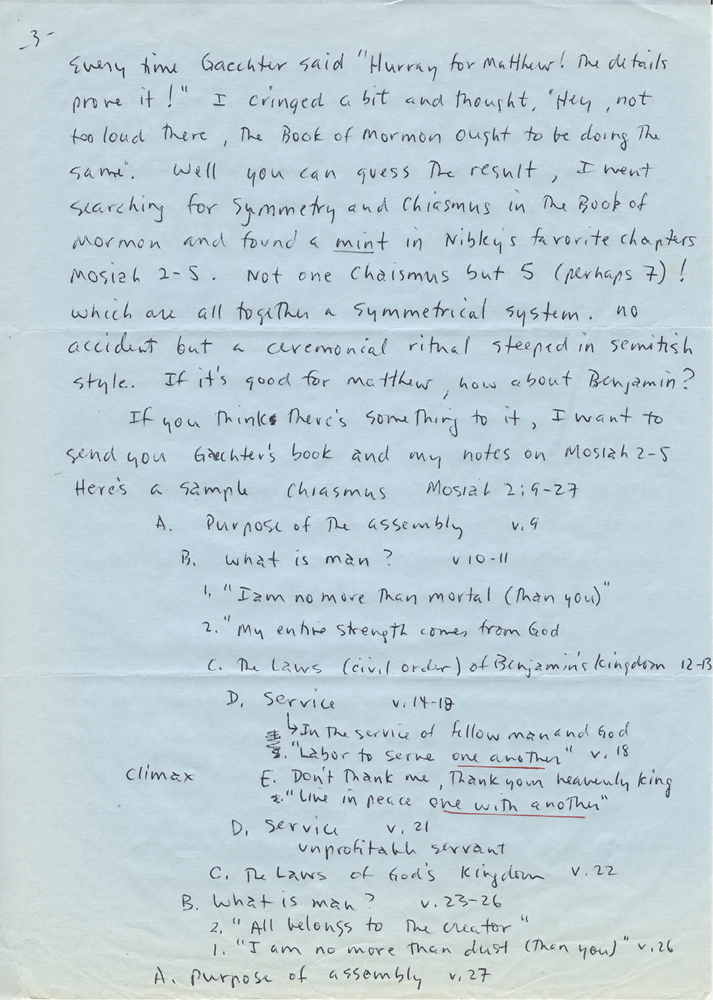 -3-
Every time Gaechter said "Hurray for Matthew! The details
prove it!" I cringed a bit and thought, "Hey, not
too loud there, The Book of Mormon ought to be doing The
same". Well you can guess The result, I went
searching for Symmetry and Chiasmus in The Book of
Mormon and found a mint in Nibley's favorite chapters
Mosiah 2-5. Not one Chaismus but 5 (perhaps 7)!
which are all together a symmetrical system. no
accident but a ceremonial ritual steeped in semitish
style. If it's good for Matthew, how about Benjamin?
If you think There's something to it, I want to
send you Gaechter's book and my notes on Mosiah 2-5
Here's a sample Chiasmus Mosiah 2:9-27
A. Purpose of The assembly v.9
B. What is man? v 10-11
1. "I am no more Than mortal (Than you)"
2. "My entire strength comes from God
C. The Laws (civil order) of Benjamin's kingdom 12-13
D. Service v.14-18
↳In The service of fellow man and God
"Labor to serve one another" v.18
Climax E. Don't Thank me, Thank your heavenly king
"Live in peace one with another"
D. Service v.21
unprofitable servant
C. The Laws of God's kingdom v.22
B. What is man? v.23-26
2. "All belongs to The creator"
1. "I am no more than dust (Than you)" v.26
A. Purpose of assembly v.27